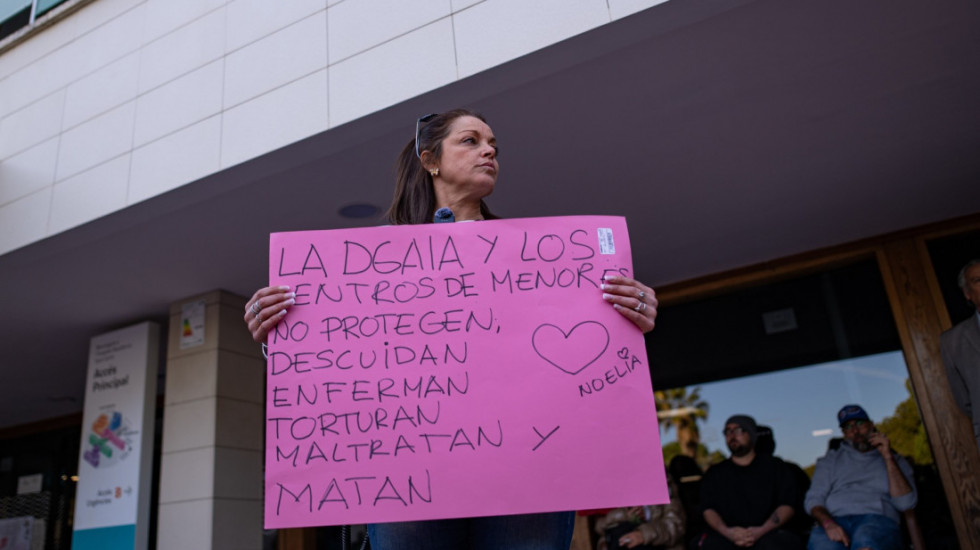 LA DGAIA Y LOS
CENTROS DE MENORES
NO PROTEGEN,
DESCUIDAN
ENFERMAN
TORTURAN
MALTRATAN Y
MATAN
NOELIA
Accés
Principal
Accés
Urgències